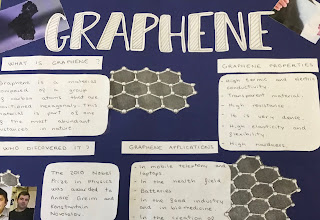 GRAPHENE
WHAT IS GRAPHENE
Graphene is a material
composed of a group
of carbon atoms that are
positioned hexagonally. This
material is part of one
of the most abundant
substances in nature
GRAPHENE PROPERTIES
- High thermal and electric
conductivity
- Transparent material.
- High resistance
- It is very dense
- High elasticity and
flexibility
- High hardness
WHO DISCOVERED IT?
The 2010 Nobel
Prize in Physics
was awarded to
Andre Greim and
Konstantin
Novoselov.
GRAPHENE APPLICATIONS
- In mobile telephony and
laptops
- In the health field
- Batteries
- In the food industry
and in biomedicine
- In the creation of